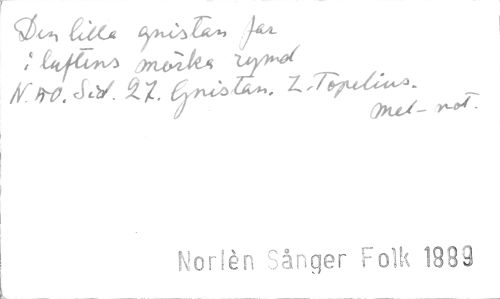 Den lilla gnistan far
i luftens mörka rymd
N. 40. Sid. 27. Gnistan. Z. Topelius.
Mel-not.
Norlèn Sånger Folk 1889